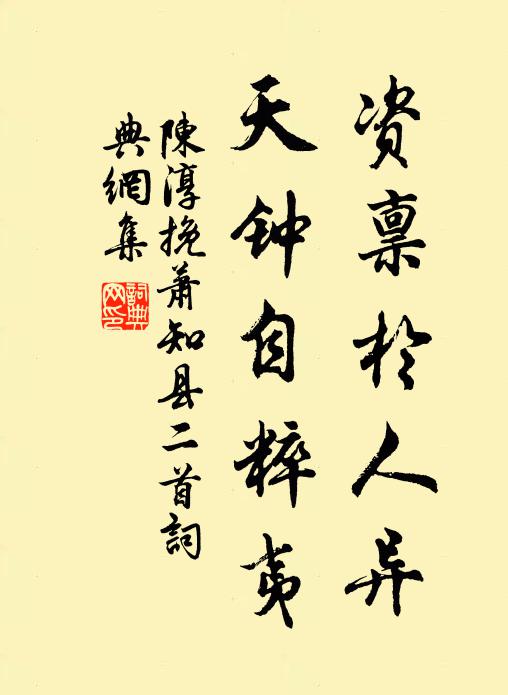 资禀於人异
天钟自粹夷
陳淳挽萧知县二首詞
典網集
詞典网印